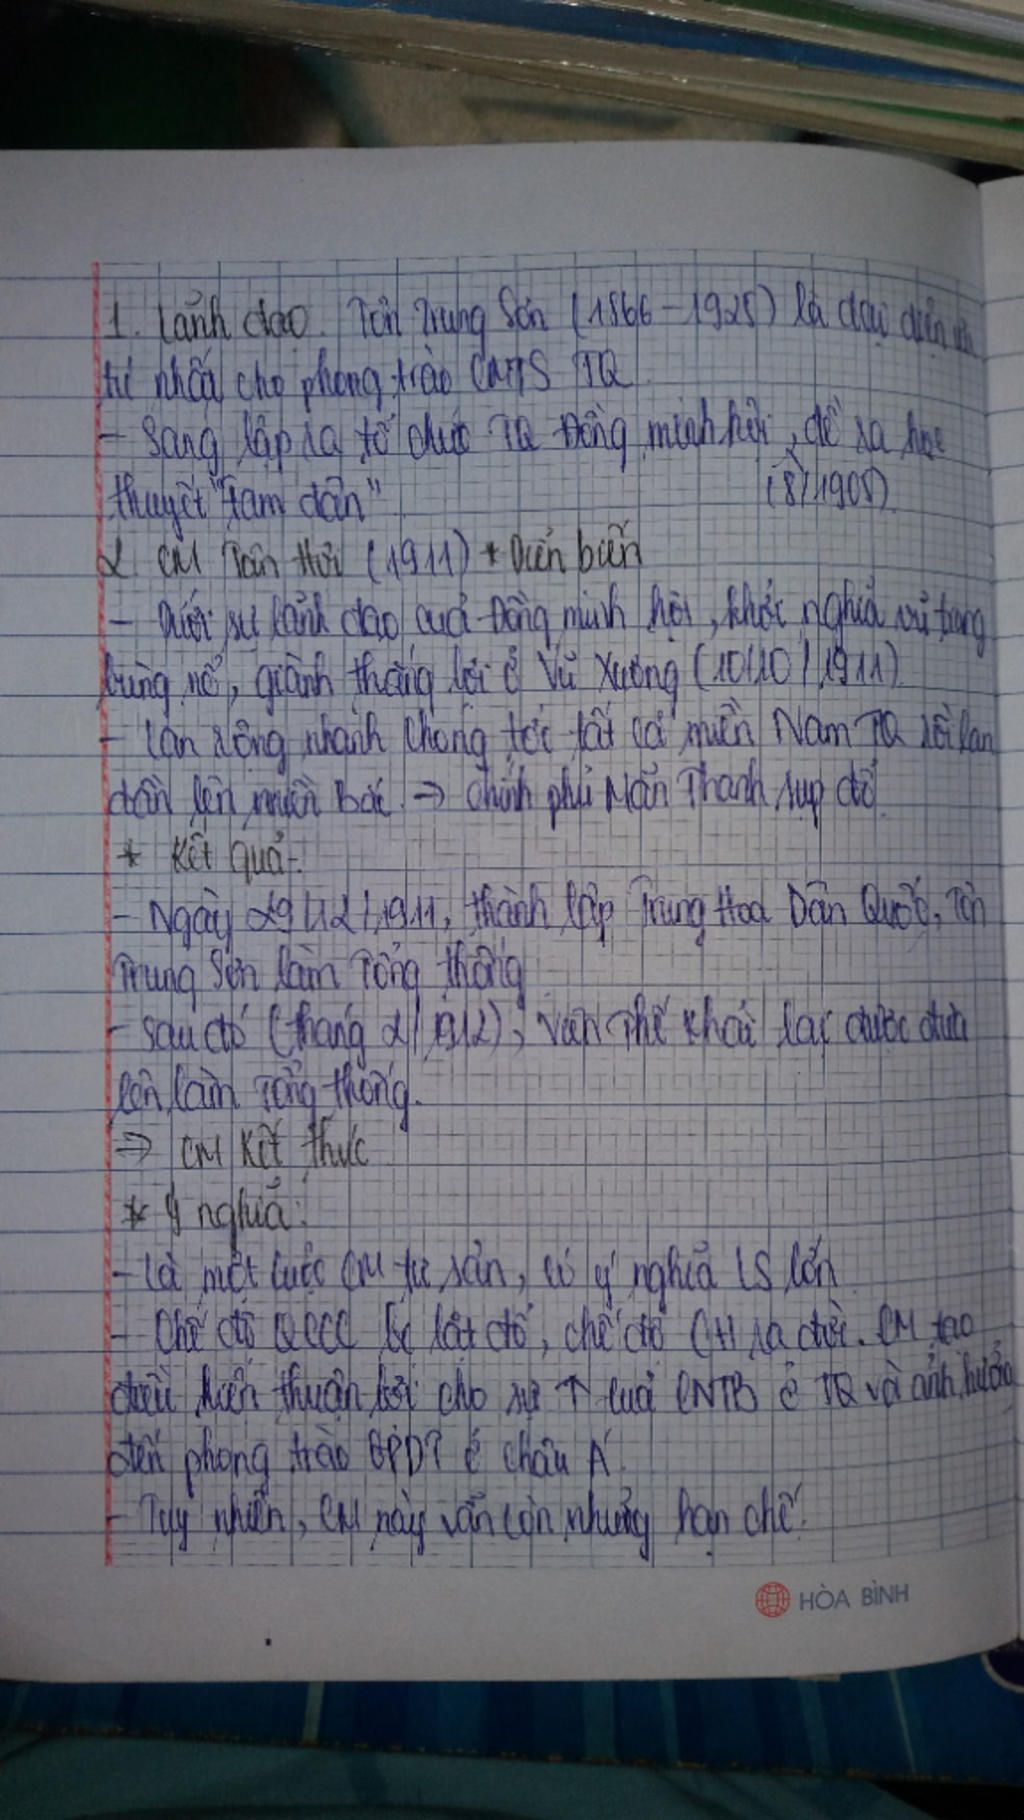 1. Lãnh đạo. Tôn Trung Sơn (1866-1925) là đại diện ưu
tú nhất cho phong trào CMTS TQ
- Sáng lập ra tổ chức TQ Đồng minh hội, đề ra học
thuyết "Tam dân" (8/1905)
2. CM Tân Hợi (1911) * Diễn biến
- Dưới sự lãnh đạo của Đồng minh hội, khởi nghĩa vũ trang
bùng nổ, giành thắng lợi ở Vũ Xương (10/10/1911)
- Lan rộng nhanh chóng tới tất cả miền Nam TQ rồi lan
dần lên miền Bắc. → chính phủ Mãn Thanh sụp đổ
* Kết quả:
- Ngày 29/12/1911, thành lập Trung Hoa Dân Quốc, Tôn
Trung Sơn làm Tổng thống
- Sau đó (tháng 2/1912), Viên Thế Khải lại được đưa
lên làm Tổng thống.
⇒ CM kết thúc
* Ý nghĩa:
- Là một cuộc CM tư sản, có ý nghĩa LS lớn
- Chế độ QCCC bị lật đổ, chế độ CH ra đời. CM tạo
điều kiện thuận lợi cho sự ↑ của CNTB ở TQ và ảnh hưởng
đến phong trào GPDT ở châu Á.
- Tuy nhiên, CM này vẫn còn những hạn chế.
HÒA BÌNH